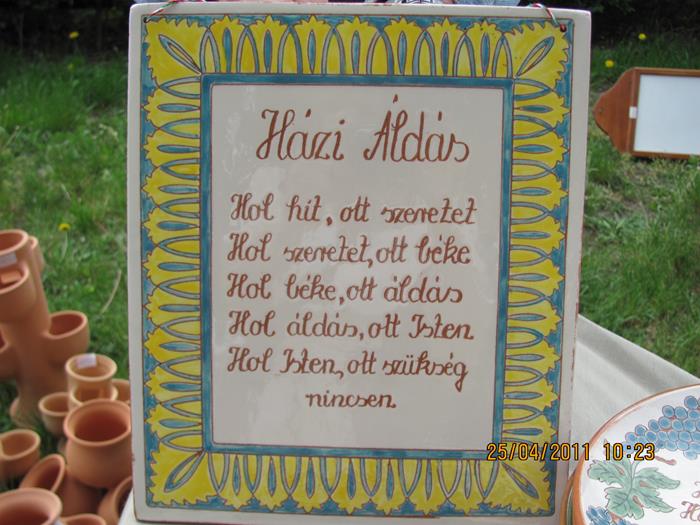 Házi Áldás
Hol hit, ott szeretet
Hol szeretet, ott béke
Hol béke, ott áldás
Hol áldás, ott Isten
Hol Isten, ott szükség
nincsen.
25/04/2011 10:23